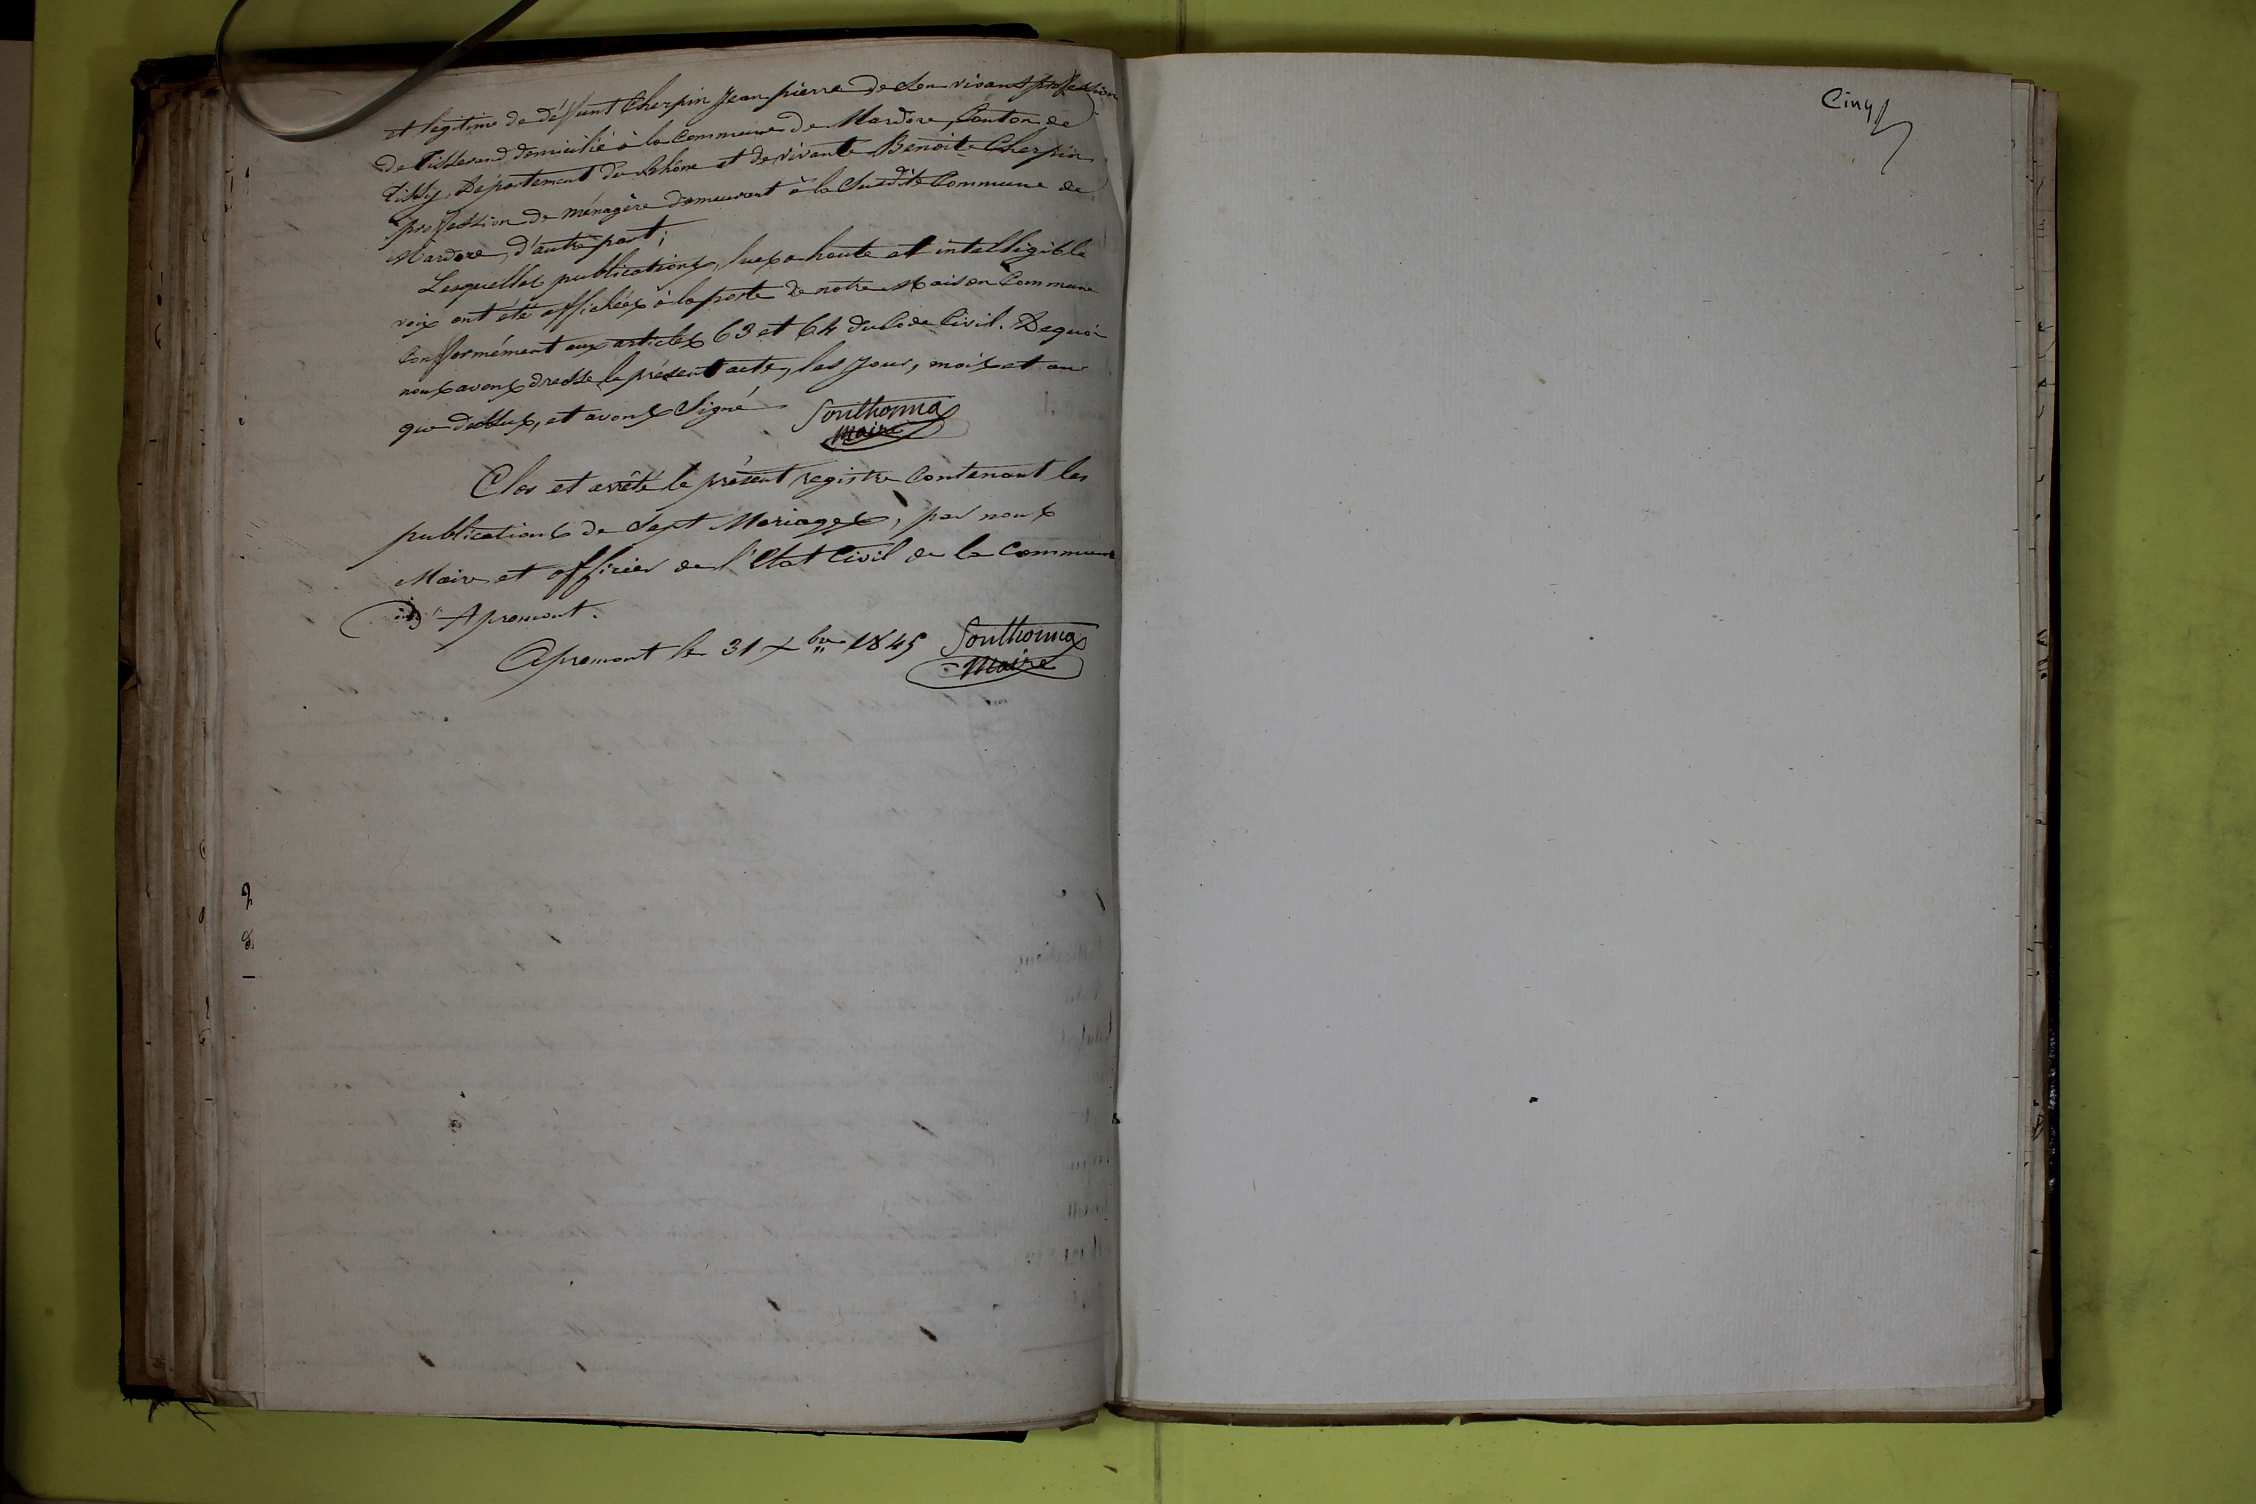 et légitime de défunt Cherpin Jean pierre de son vivant profession
de Tisserand domicilié à la Commune de Mardore, Canton de
Tissy, Département du Rhône et de vivante Benoite Cherpin
profession de ménagère demeurant à la Susdite Commune de
Mardore, d'autre part;
Lesquelles publications, lues a haute et intelligible
voix ont été affichées à la porte de notre Maison Commune
Conformément aux articles 63 et 64 du Code Civil. De quoi
nous avons dressé le présent acte, les jour, mois et an
que dessus, et avons Signé Southonnax
Maire
Clos et arrêté le présent registre Contenant les
publications de Sept Mariages, par nous
Maire et officier de l'Etat Civil de la Commune
d'Apremont.
Apremont le 31 Xbre 1845 Southonnax
Maire
Cinq